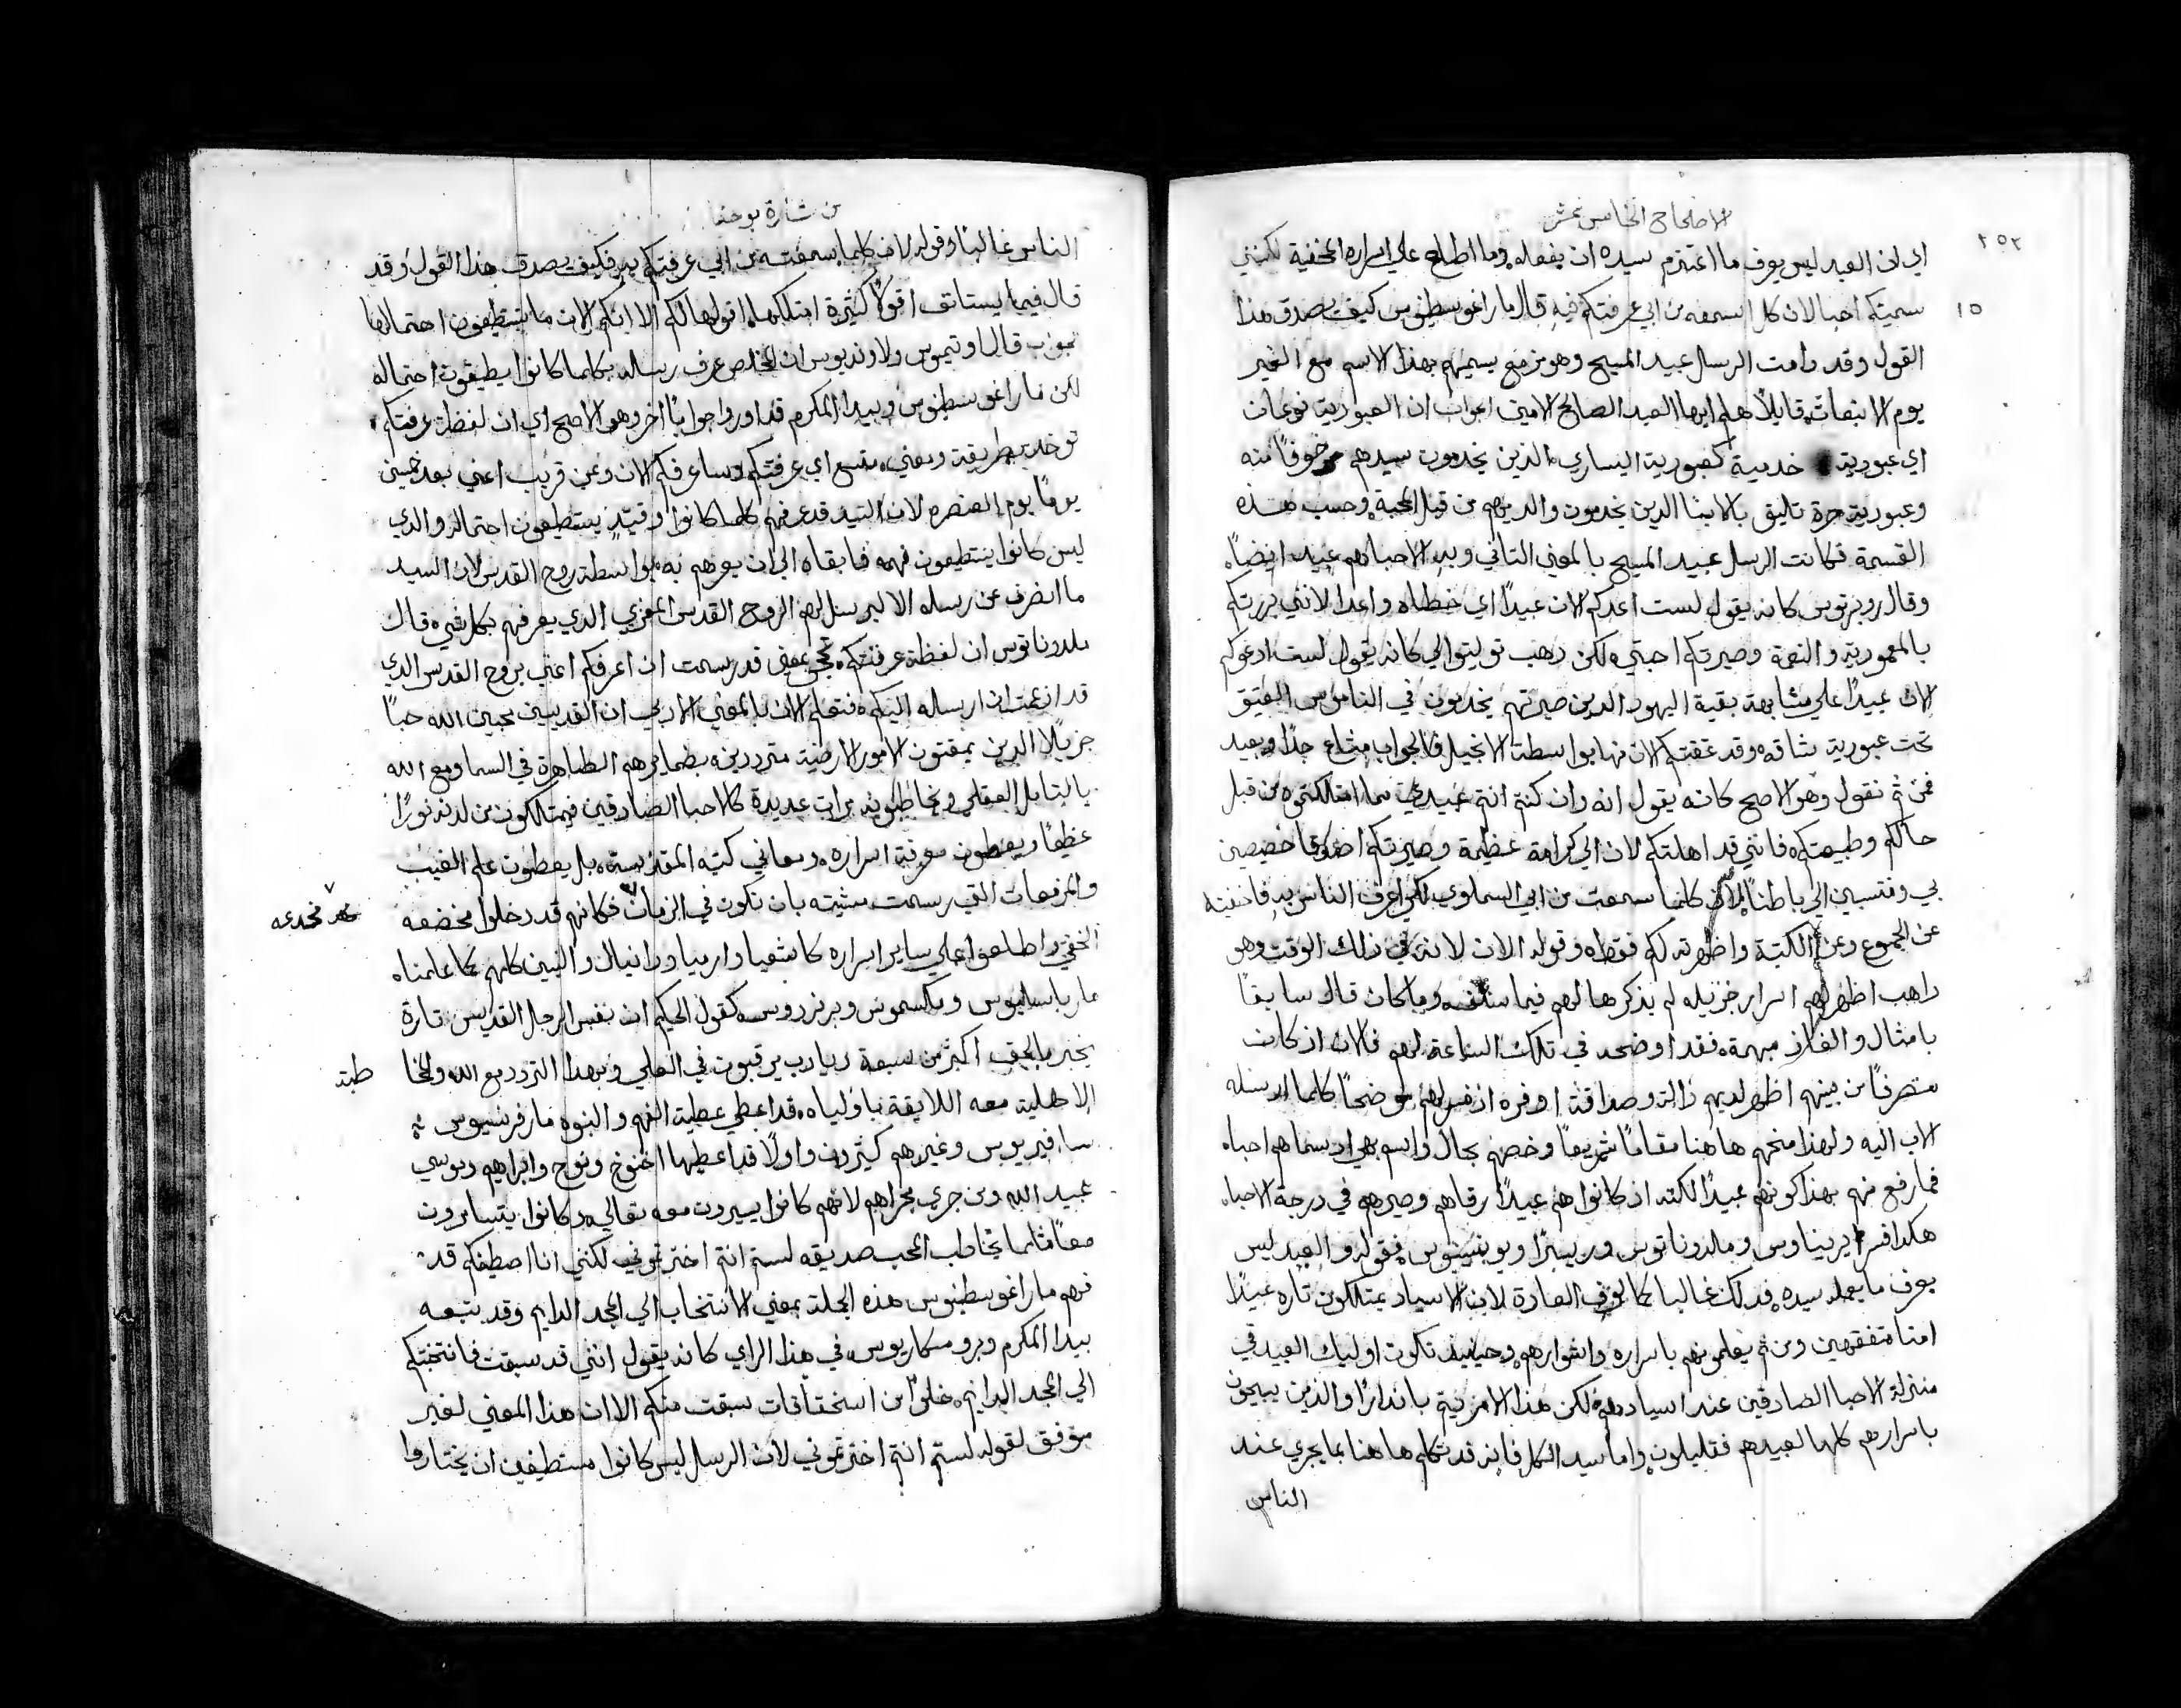 الاصحاح الخامس عشر
٢٥٢
اي ان العبد ليس يعرف ما اعتزم سيده ان يفعله وما اطلع علي اسراره المخفية لكنني
١٥
سميتكم احبا لان كل ما سمعه من ابي عرفتكم فيه قال مار اغوسطينوس كيف يصدق هذا
القول وقد دامت الرسل عبيد المسيح وهو مزمع يسميهم بهذا الاسم مع الغير
يوم الانبعاث قايلاً هلم ايها العبد الصالح الامين الجواب ان العبودية نوعان
اي عبودية خدمية كعبودية اليساري الذين يخدمون سيدهم خوفاً منه
وعبودية حرة تليق بالابنا الذين يخدمون والديهم من قبل المحبة وحسب هذه
القسمة فكانت الرسل عبيد المسيح بالمعني التاني وبه الاحبا هم عبيد ايضاً
وقال روبرتوس كانه يقول لست اعدكم الان عبيداً اي خطاه واعدا لانني بررتكم
بالمعمودية والنعمة وصيرتكم احبتي لكن ذهب توليتوا الي كانه يقول لست ادعوكم
الان عبيداً علي مشابهة بقية اليهود الدين صيرتهم يخدمون في الناموس العتيق
تحت عبودية شاقه وقد عتقتكم الان منها بواسطة الانجيل فالجواب متاع جداً وبعيد
فمن ثم نقول وهو الاصح كانه يقول انه وان كنتم انتم عبيدي مما امتلكتموه من قبل
حالكم وطبيعتكم فانني قد اهلتكم الان الي كرامة عظيمة وصيرتكم اصدقا خصيصين
بي ومنتسبين الي باطناً لان كلما سمعت من ابي السماوي لكي اعرف الناس به فاخفيته
عن الجموع وعن الكتبة واظهرته لكم فقط وقوله الان لانه في ذلك الوقت وهو
داهب اظهر لهم اسرار جزيله لم يذكرها لهم فيما سلف وما كان قال سابقاً
بامثال والغاز مبهمة فقد اوضحه في تلك الساعة لهم فالان اذ كان
متصرفاً من بينهم اظهر لديهم دالة وصداقة اوفره اذ فسر لهم موضحاً كلما ارسله
الاب اليه ولهذا منحهم هاهنا مقاماً شريفاً وخصهم بجال واسم بهي اذ سماهم احباه
فما رفع منهم بهذا كونهم عبيداً لكنه اذ كانوا هم عبيداً رقاهم وصيرهم في درجة الاحباه
هكدا فسر ايريناوس ومالدوناتوس وريبيرا ويوبنسينوس فقوله والعبد ليس
يعرف ما يعمله سيده فدلك غالبا كالوف العادة لان الاسياد يمتلكون تاره عبيداً
امنا متفقهين ومن ثم يعلمونهم باسراره واشوارهم وحينيد تكون اوليك العبيد في
منزلة الاحبا الصادقين عند اسيادهم لكن هذا الامر فيتم بانداراً والذين يبيحون
باسرارهم كلها لعبيدهم فقليلون واما سيد الكل فانه قد تكلم هاهنا بما يجري عند
الناس
من بشارة يوحنا
الناس غالبا وقوله لان كلما سمعته من ابي عرفتكم به فكيف يصدق هذا القول وقد
قال فيما يستانف اقولاً كثيرة امتلكها اقولها لكم الا انكم الان ما تستطيعون احتمالها
نجوب قال اوتيموس ولاونديوس ان المخلص عرف رسله بكلما كانوا يطيقون احتماله
لكن مار اغوسطينوس وبيدا المكرم قد اوردا جواباً اخر وهو الاصح اي ان لفظة عرفتكم
توخد بطريقة ومعني متسع اي عرفتكم وساعرفكم الان وعن قريب اعني بعد خمسين
يوماً يوم العنصره لان السيد قد عرفهم كلما كانوا وقتيدٍ يستطيعون احتماله والدي
ليس كانوا يستطيعون فهمه فابقاه الي ان يعرهم به بواسطة روح القدس لان السيد
ما انصرف عن رسله الا ليرسل لهم الروح القدس المعزي الدي يعرفهم بكل شي قال
ملدوناتوس ان لفظة عرفتكم تجي عوض قد رسمت ان اعرفكم اعني بروح القدس الدي
قد ازمعت ان ارسله اليكم فتعلم الان بالمعني الادبي ان القديسين محبين الله حباً
جزيلاً الدين يمقتون الامور الارضية مترددين بضمايرهم الطاهرة في السما ومع الله
بالتامل العقلي ويخاطبونه مرات عديدة كالاحبا الصادقين فيمتلكون من لدنه نوراً
عظيماً ويعطون معرفة اسراره ومعاني كتبه المقدسة بل يعطون علم الغيب
والمزمعات التي رسمت مشيته بان تكون في الزمان فكانهم قد دخلوا مخضعه
مخدعه
الخفي واطلعوا علي ساير اسراره كاشعيا وارميا ودانيال والنبيين كلهم كما علمناه
مار باسيليوس ومكسموس وبرنردوس كقول الحكيم ان نفس الرجل القديس تارة
يخبر بالحق اكثر من سبعة ديادب يرقبون في العلي وبهدا التردد مع الله والمخا
طبة
الاهلية معه اللايقة باوليا ه قد اعطي عطية الفهم والنبوه مار فرنسيوس ثم
سافيريوس وغيرهم كثيرون واولاً قد اعطيها اخنوخ ونوح وابراهيم وموسي
عبيد الله ومن جري مجراهم لانهم كانوا يسيرون معه تعالي وكانوا يتسامرون
معاً مثلما يخاطب المحب صديقه لستم انتم اخترتموني لكنني انا اصطفيتكم قد
فهم مار اغوسطينوس هذه الجملة بمعني الانتخاب الي المجد الدايم وقد يتبعه
بيدا المكرم وبروسكاريوس في هذا الراي كانه يقول انني قد سبقت فانتخبتكم
الي المجد الدايم خلواً من استحقاقات سبقت منكم الا ان هذا المعني لغير
موفق لقوله لستم انتم اخترتموني لان الرسل ليس كانوا مستطيعين ان يختاروا